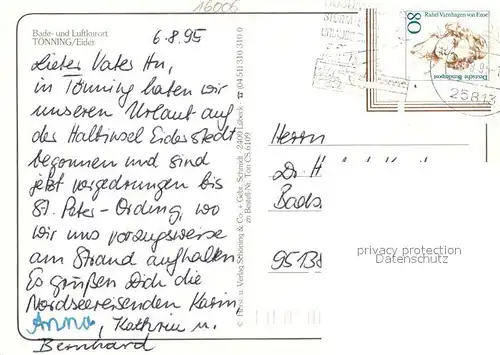 16006
Bade- und Luftkurort
TÖNNING/Eider
6.8.95
Lieber Vater Hn,
in Tönning haben wir
unseren Urlaub auf
der Halbinsel Eiderstedt
begonnen und sind
jetzt vorgedrungen bis
St. Peter-Ording, wo
wir uns vorzugsweise
am Strand aufhalten.
Es grüßen Dich die
Nordseereisenden Karin,
Anna, Kathrin u.
Bernhard
© Horst u. Verlag Schöning & Co. + Gebr. Schmidt · 2400 Lübeck · ☎ (0451) 310 310 0
zu Bestell-Nr. Tön CS 6109
Rahel Varnhagen von Ense
80
Deutsche Bundespost
25813
Herrn
Dr. H
Bads
9513
privacy protection
Datenschutz